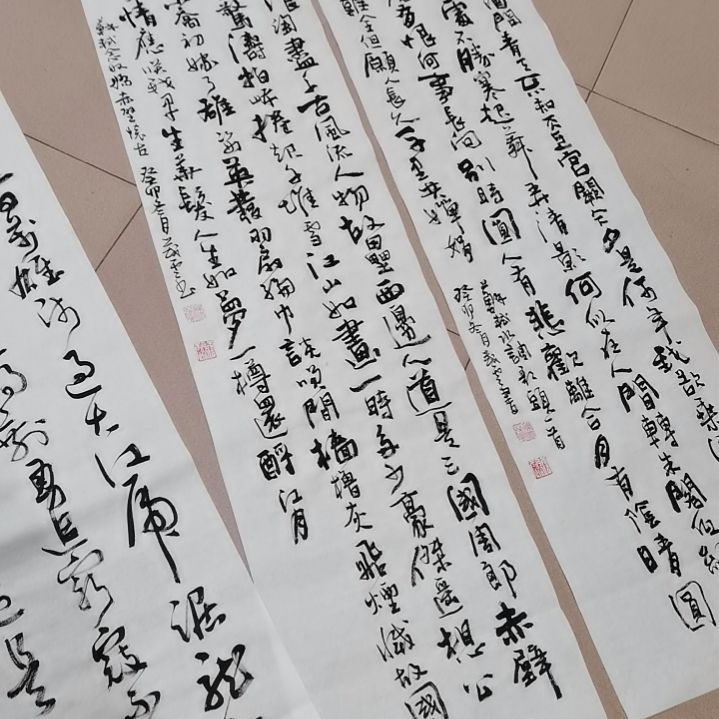 酒問青天不知天上宮闕今夕是何年我欲乘
不勝寒起舞弄清影何似在人間轉朱閣低綺
有恨何事長向別時圓人有悲歡離合月有陰晴圓
難全但願人長久千里共嬋娟
蘇軾水調歌頭一首
癸卯冬月
淘盡千古風流人物故壘西邊人道是三國周郎赤壁
驚濤拍岸捲起千堆雪江山如畫一時多少豪傑遙想公
喬初嫁了雄姿英發羽扇綸巾談笑間檣櫓灰飛煙滅故國
情應笑我早生華髮人生如夢一樽還酹江月
蘇軾念奴嬌赤壁懷古癸卯冬月
百萬雄師過大江虎踞龍
剩勇追窮寇不